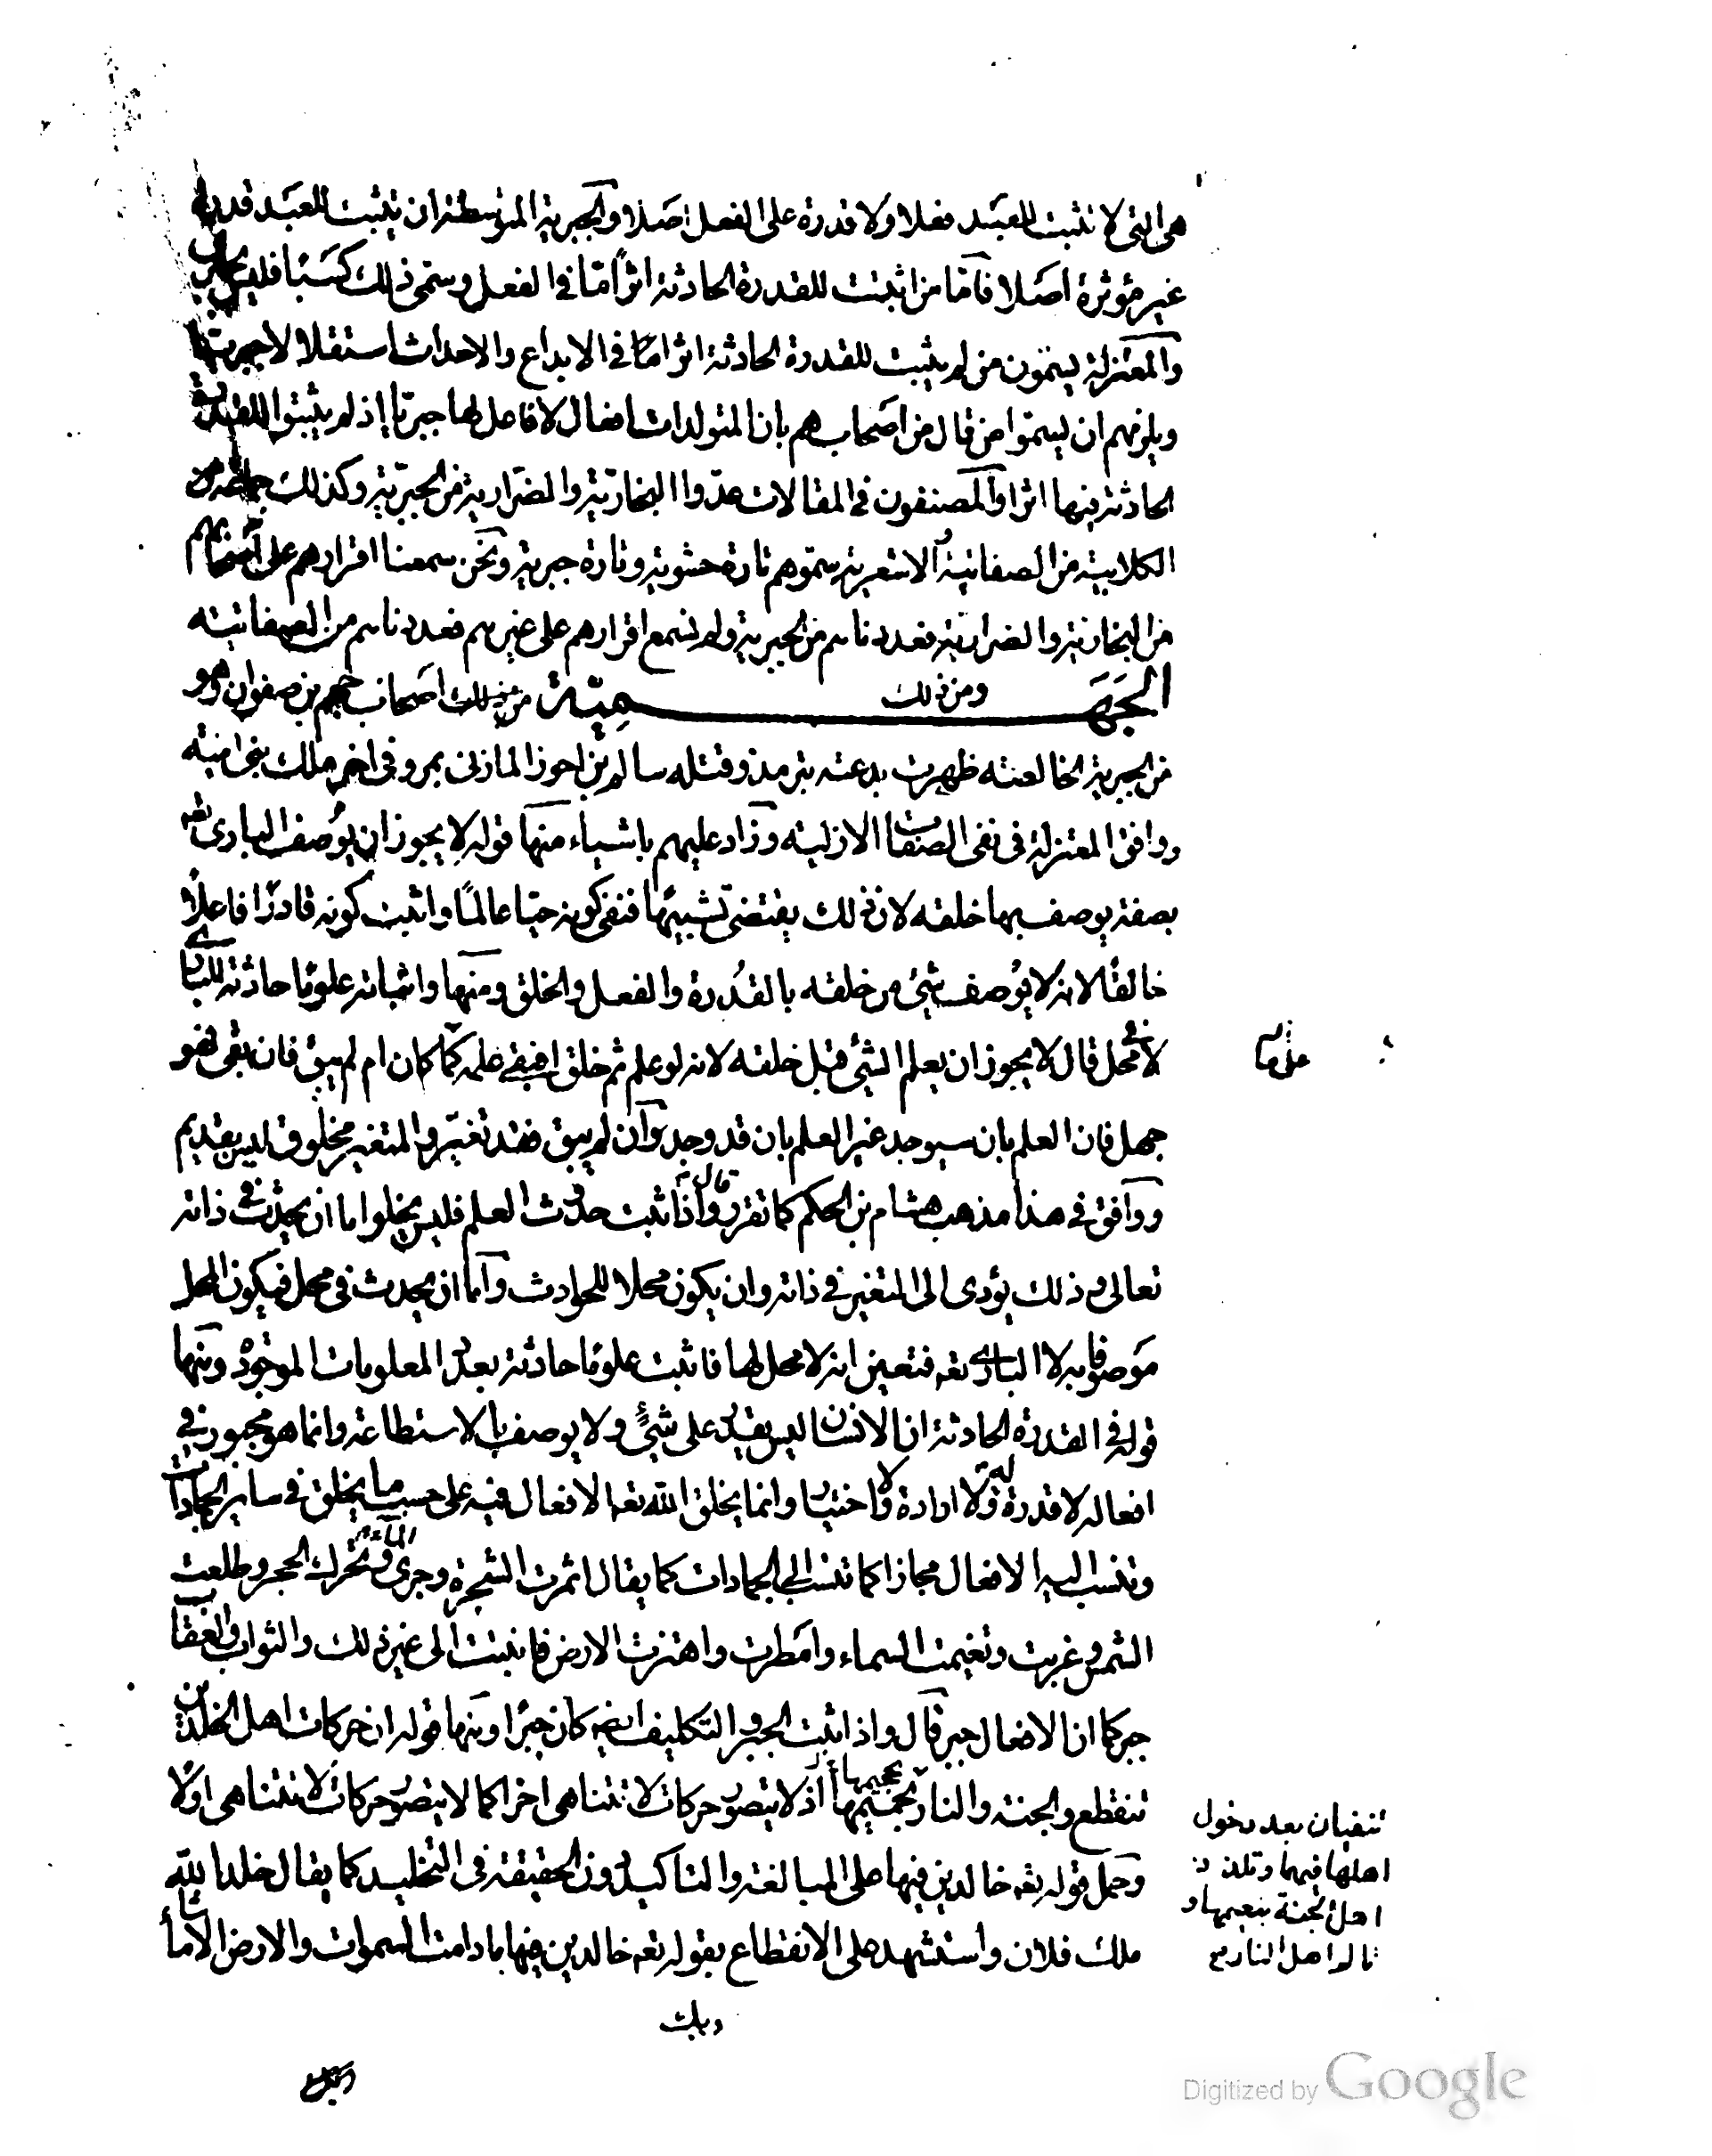 هي التي لا تثبت للعبد فعلا ولا قدرة على الفعل اصلا والجبرية المتوسطة ان يثبت للعبد قدرة
غير مؤثرة اصلا فاما من اثبت للقدرة الحادثة اثرًا ما في الفعل وسمى ذلك كسبًا فليس بجبري
والمعتزلة يسمون من لم يثبت للقدرة الحادثة اثرا ما في الابداع والاحداث استقلالا جبريا
ويلزمهم ان يسموا من قال من اصحابهم بان المتولدات افعال لا فاعل لها جبريا اذ لم يثبتوا للقدرة
الحادثة فيها اثرا والمصنفون في المقالات عدّوا النجارية والضرارية من الجبرية وكذلك جماعة من
الكلابية من الصفاتية والاشعرية سموهم تارة حشوية وتارة جبرية ونحن سمعنا اقرارهم على اصحابهم
من النجارية والضرارية فعددناهم من الجبرية ولم نسمع اقرارهم على غيرهم فعددناهم من الصفاتية
ومن ذلك
الجَهَمِيّة من ذلك اصحاب جهم بن صفوان وهو
من الجبرية الخالصة ظهرت بدعته بترمذ وقتله سالم بن احوز المازني بمرو في اخر ملك بني امية
ووافق المعتزلة في نفي الصفات الازلية وزاد عليهم باشياء منها قوله لا يجوز ان يوصف البارى تعه
بصفة يوصف بها خلقه لان ذلك يقتضى تشبيهًا فنفى كونه حيّا عالمًا واثبت كونه قادرًا فاعلًا
خالقًا لانه لا يوصف شئ من خلقه بالقدرة والفعل والخلق ومنها واثباته علومًا حادثة للبارى
لا في محل قال لا يجوز ان يعلم الشئ قبل خلقه لانه لو علم ثم خلق افبقى علمه كما كان ام لم يبق فان بقى فهو
على ما
جهل فان العلم بان سيوجد غير العلم بان قد وجد وان لم يبق فقد تغيّر والمتغير مخلوق ليس بقديم
ووافق في هذا مذهب هشام بن الحكم كما تقرر قال واذا ثبت حدوث العلم فليس يخلوا اما ان يحدث في ذاته
تعالى وذلك يؤدى الى التغير في ذاته وان يكون محلا للحوادث واما ان يحدث في محل فيكون المحل
موصوفا به لا البارى تعه فتعين انه لا محل لها فاثبت علومًا حادثة بعدد المعلومات الموجودة ومنها
قوله في القدرة الحادثة ان الانسان ليس يقدر على شئ ولا يوصف بالاستطاعة وانما هو مجبور في
افعاله لا قدرة له ولا ارادة ولا اختيار وانما يخلق الله تعه الافعال فيه على حسب ما يخلق في ساير الجمادات
وتنسب اليه الافعال مجازا كما تنسب الى الجمادات كما يقال اثمرت الشجرة وجرى الماء وتحرك الحجر وطلعت
الشمس وغربت وتغيمت السماء وامطرت واهتزت الارض فانبتت الى غير ذلك والثواب والعقاب
جبر كما ان الافعال جبر قال واذا ثبت الجبر والتكليف ايضا كان جبرًا ومنها قوله ان حركات اهل الخلدين
تنقطع والجنة والنار بجحيمها اذ لا يتصور حركات لا تتناهى اخرا كما لا يتصور حركات لا تتناهى اولا
تفنيان بعد دخول
اهلها فيهما وتلذذ
اهل الجنة بنعيمها و
تالم اهل النار
وحمل قوله تعه خالدين فيها على المبالغة والتاكيد دون الحقيقة في التخليد كما يقال خلد الله
ملك فلان واستشهد على الانقطاع بقوله تعه خالدين فيها ما دامت السموات والارض الا ما شا
ربك
Digitized by Google